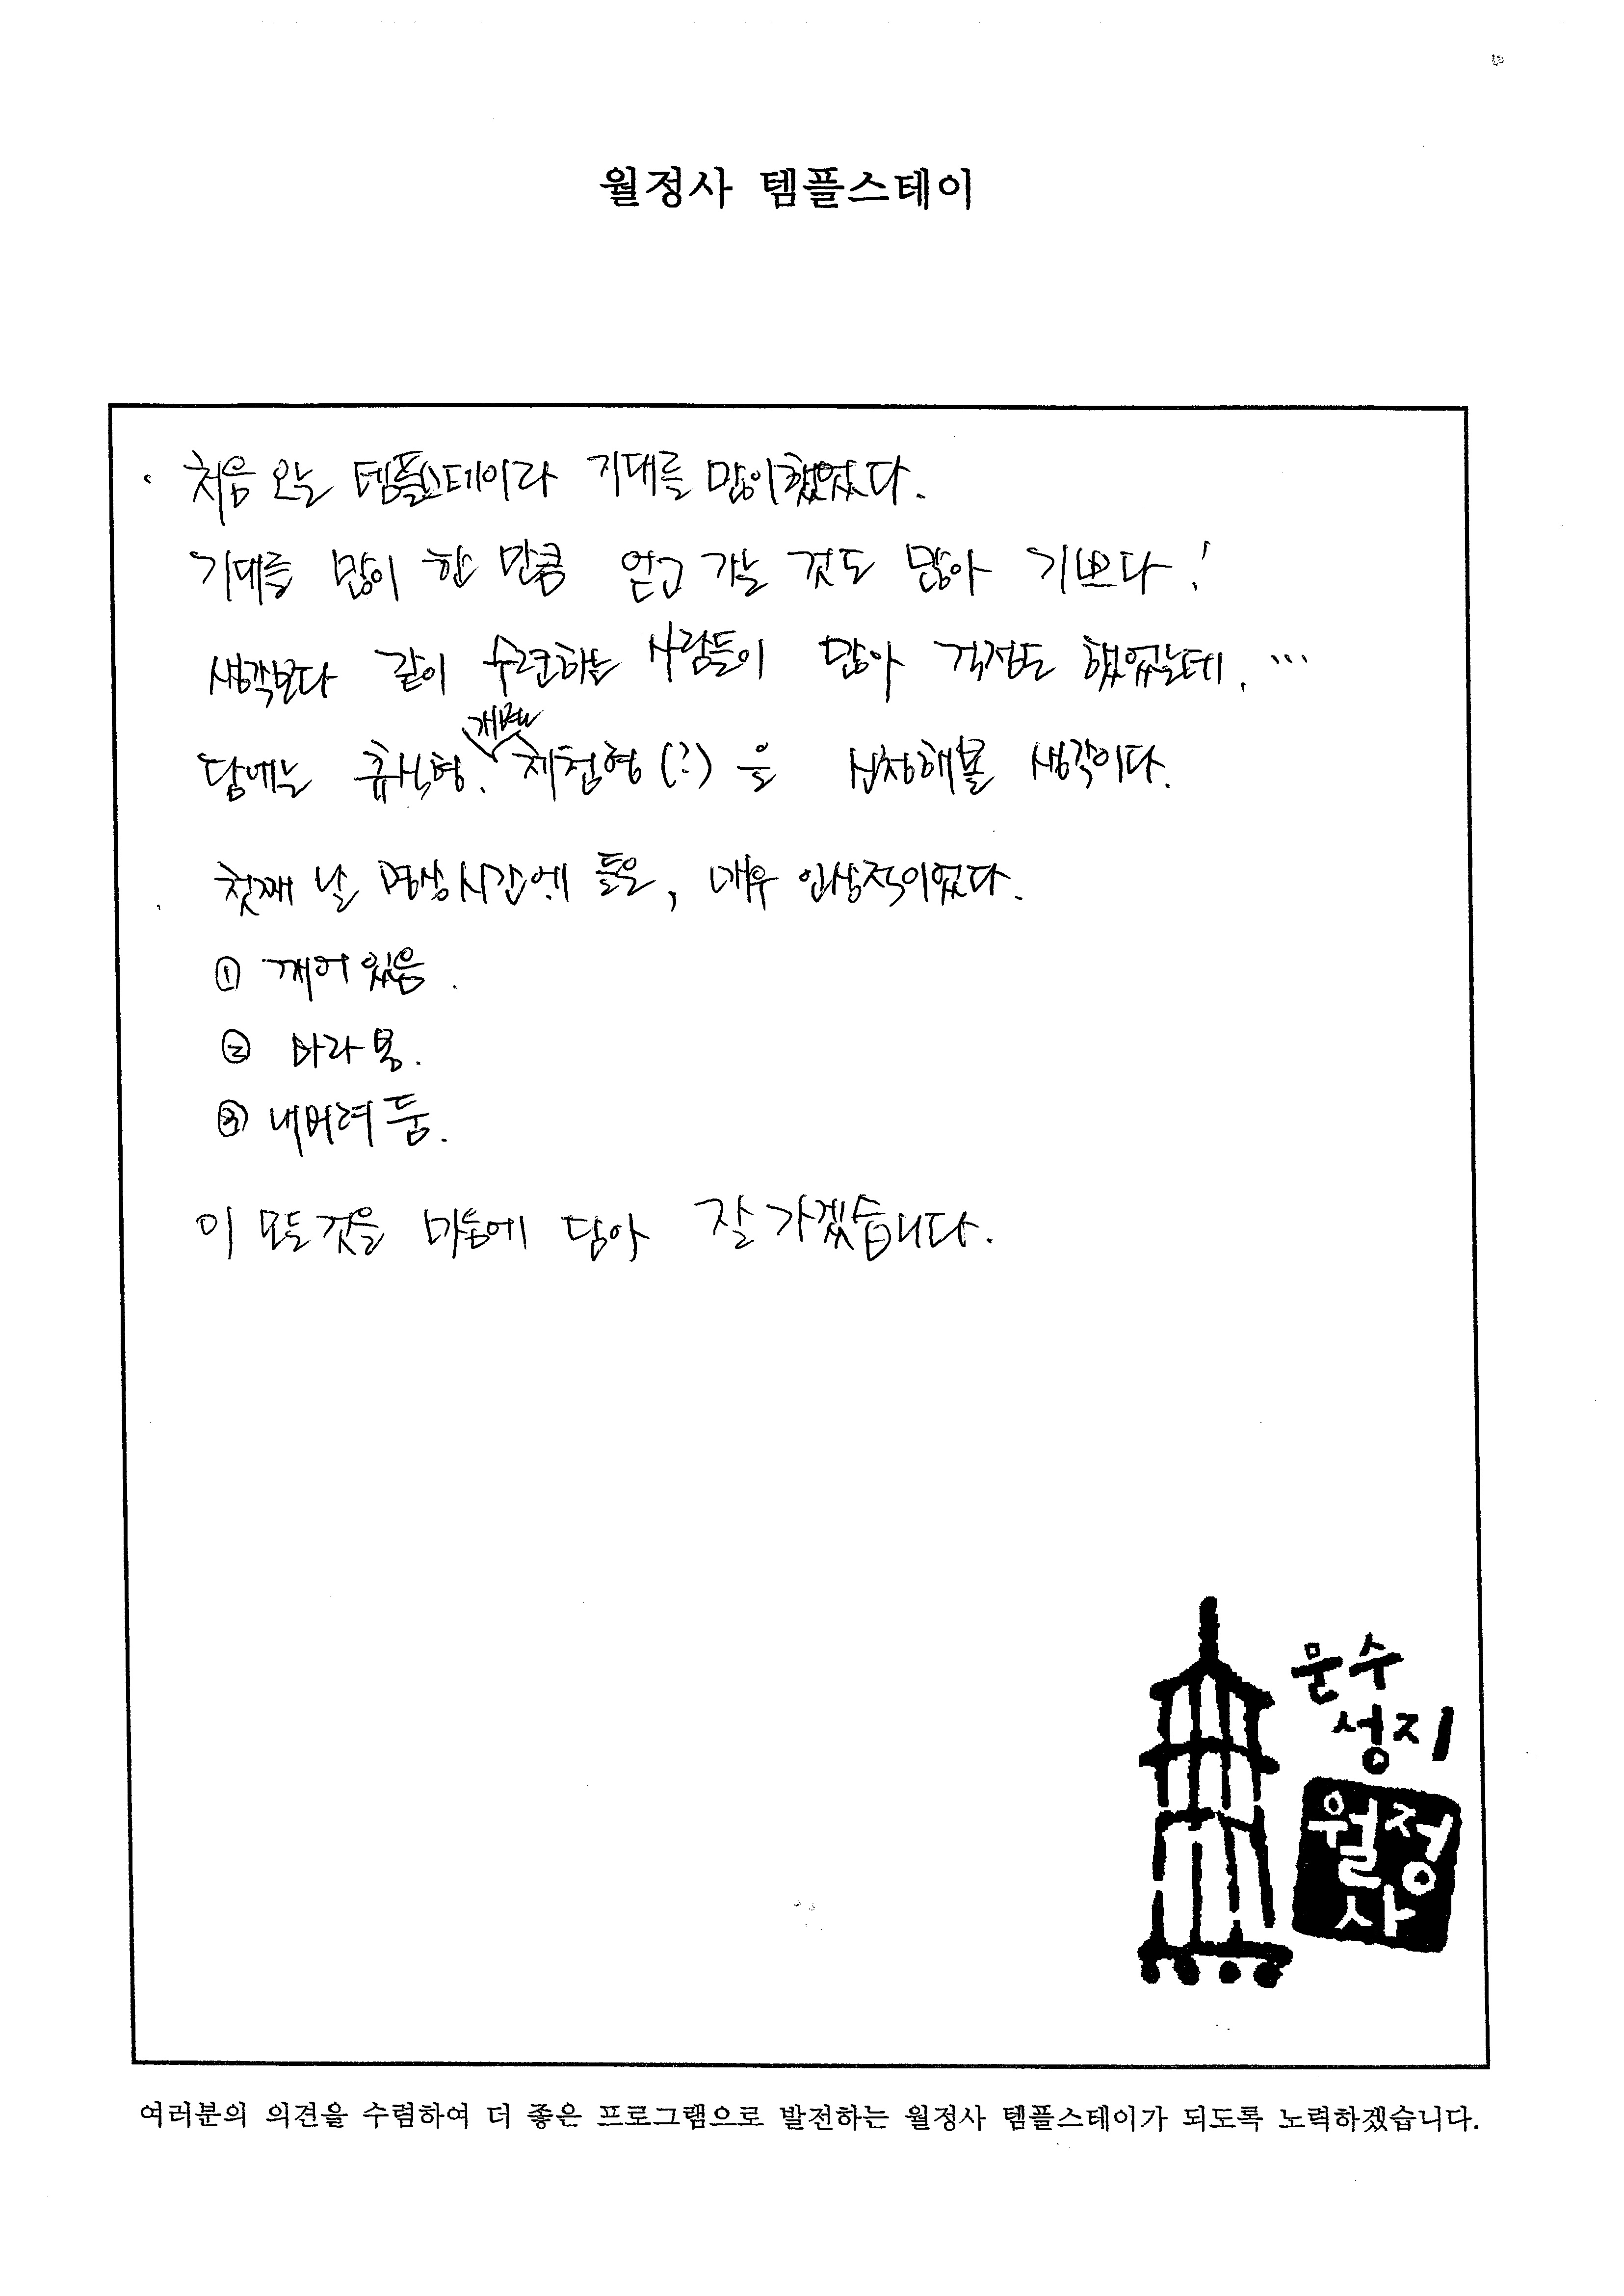 월정사 템플스테이
· 처음 오는 템플스테이라 기대를 많이했었다.
기대를 많이 한 만큼 얻고 가는 것도 많아 기쁘다!
생각보다 같이 수련하는 사람들이 많아 걱정도 했었는데. …
담에는 휴식형. 개별 체험형(?)을 신청해볼 생각이다.
첫째 날 명상시간에 들은, 매우 인상적이었다.
① 깨어있음.
② 바라봄.
③ 내버려 둠.
이 모든것을 마음에 담아 잘 가겠습니다.
문수
성지
월정
사
여러분의 의견을 수렴하여 더 좋은 프로그램으로 발전하는 월정사 템플스테이가 되도록 노력하겠습니다.